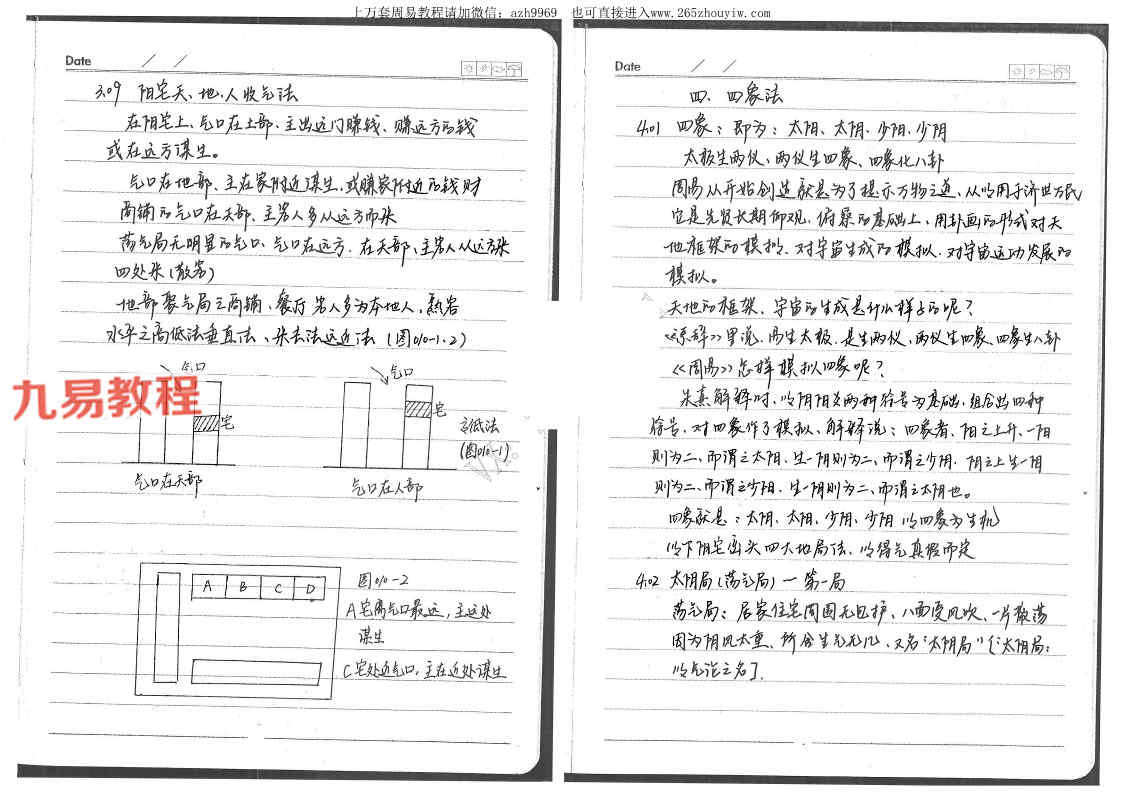 上万套周易教程请加微信：azh9969 也可直接进入www.265zhouyiw.com
Date / /
3.09 阳宅天、地、人收气法
在阳宅上、气口在上部、主出远门赚钱、赚远方的钱
或在远方谋生。
气口在地部、主在家附近谋生、或赚家附近的钱财
商铺的气口在天部、主客人多从远方而来
荡气局无明显的气口、气口在远方、在天部、主客人从远方来
四处来（散客）
地部聚气局之商铺、餐厅客人多为本地人、熟客
水平之高低法垂直法、来去法远近法（图010-1.2）
气口
宅
气口在天部
气口
宅
气口在人部
高低法
（图010-1）
九易教程
A B C D
图010-2
A宅离气口最远，主远处
谋生
C宅处近气口，主在近处谋生
Date / /
四、四象法
4.01 四象：即为：太阴、太阳、少阴、少阳
太极生两仪、两仪生四象、四象化八卦
周易从开始创造就是为了提示万物之道、从以用于济世万民
它是先贤长期仰观、俯察的基础上、用卦画的形式对天
地框架的模拟、对宇宙生成的模拟、对宇宙运动发展的
模拟。
天地的框架、宇宙的生成是什么样子的呢？
《系辞》里说、易生太极、是生两仪、两仪生四象、四象生八卦
《周易》怎样模拟四象呢？
朱熹解释时、以阴阳爻两种符号为基础、组合出四种
符号、对四象作了模拟、解释说：四象者、阳之上升、一阳
则为二、而谓之太阳、生一阴则为二、而谓之少阴、阴之上生一阳
则为二、而谓之少阳、生一阴则为二、而谓之太阴也。
四象就是：太阴、太阳、少阴、少阳以四象为生机
以下阳宅峦头四大地局法、以得气真假而定
4.02 太阴局（荡气局）一 第一局
荡气局：居家住宅周围无包护、八面受风吹、一片散荡
因为阴风太重、所含生气无几、又名“太阴局”（太阴局：
以气论之名］.